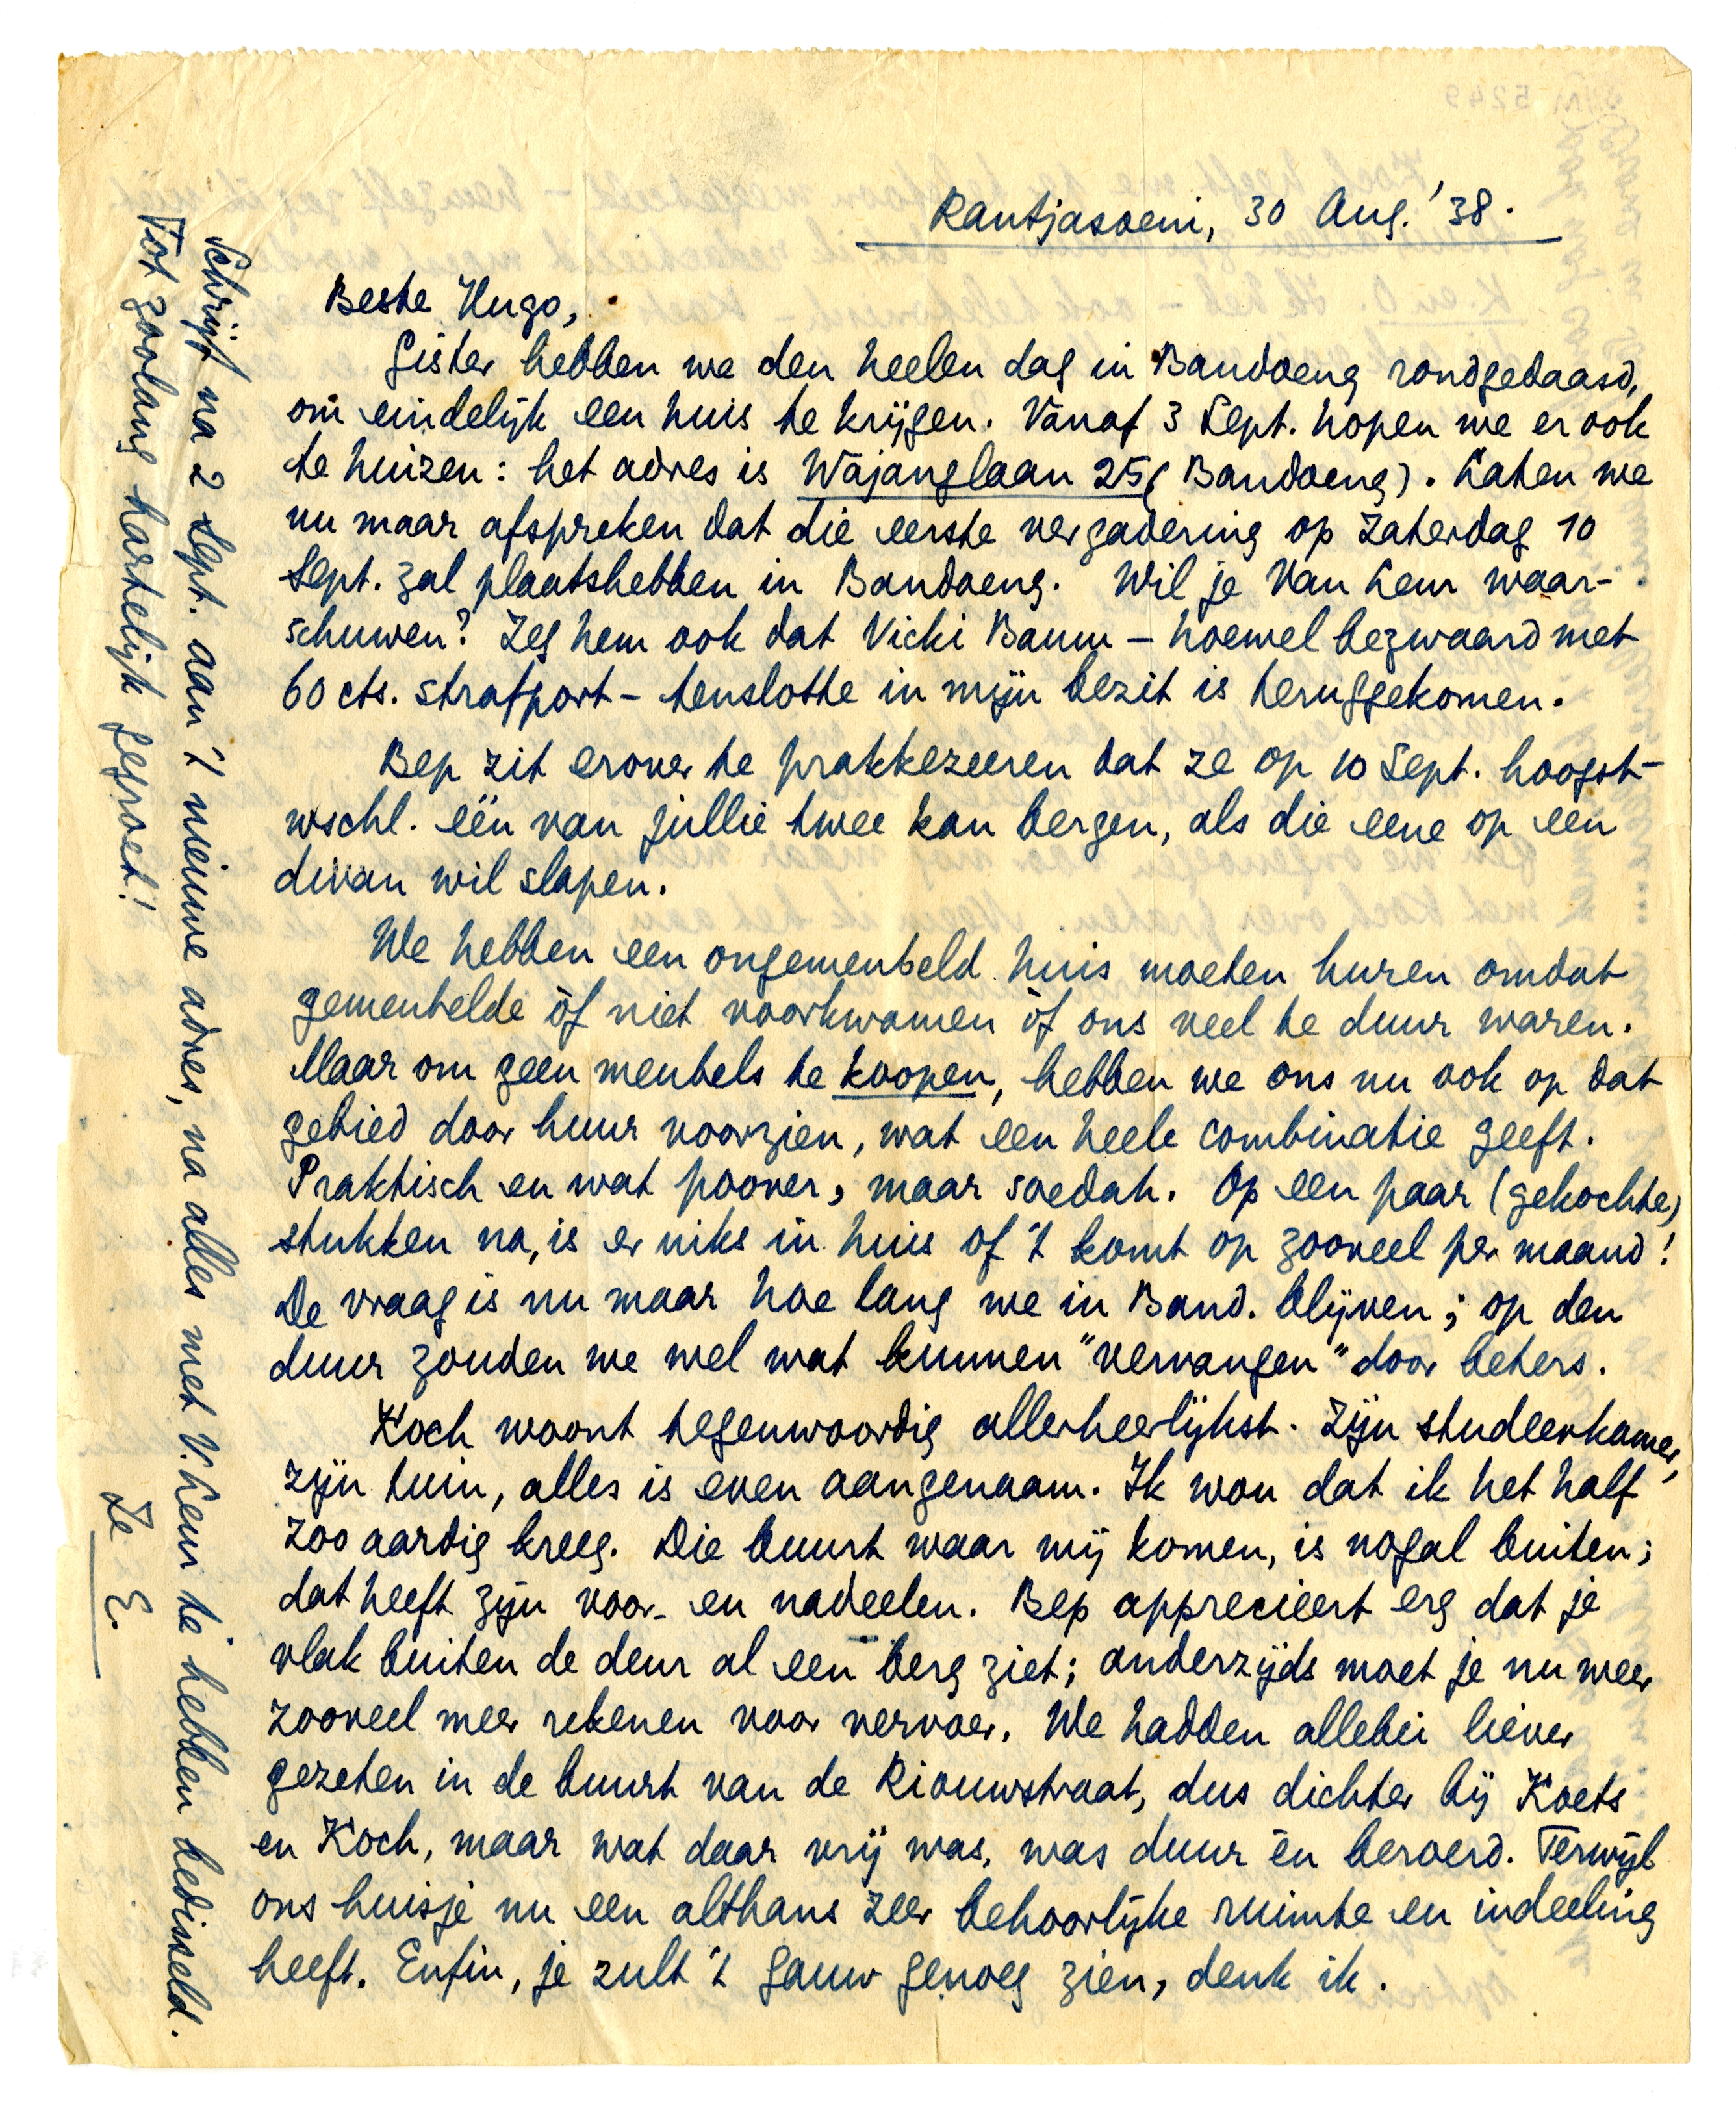 Rantjasoeni, 30 Aug. '38.
Beste Hugo,
Gister hebben we den heelen dag in Bandoeng rondgedaasd,
om eindelijk een huis te krijgen. Vanaf 3 Sept. hopen we er ook
te huizen: het adres is Wajanglaan 25 (Bandoeng). Laten we
nu maar afspreken dat die eerste vergadering op Zaterdag 10
Sept. zal plaatshebben in Bandoeng. Wil je Van Leur waar-
schuwen? Zeg hem ook dat Vicki Baum – hoewel bezwaard met
60 cts. strafport – tenslotte in mijn bezit is teruggekomen.
Bep zit erover te prakkezeeren dat ze op 10 Sept. hoogst-
wschl. één van jullie twee kan bergen, als die eene op een
divan wil slapen.
We hebben een ongemeubeld huis moeten huren omdat
gemeubelde òf niet voorkwamen òf ons veel te duur waren.
Maar om geen meubels te koopen, hebben we ons nu ook op dat
gebied door huur voorzien, wat een heele combinatie geeft.
Praktisch en wat poover, maar soedah. Op een paar (gekochte)
stukken na, is er niks in huis of 't komt op zooveel per maand!
De vraag is nu maar hoe lang we in Band. blijven; op den
duur zouden we wel wat kunnen "vervangen" door beters.
Koch woont tegenwoordig allerheerlijkst. Zijn studeerkamer,
zijn tuin, alles is even aangenaam. Ik wou dat ik het half
zoo aardig kreeg. Die buurt waar wij komen, is nogal buiten;
dat heeft zijn voor- en nadeelen. Bep apprecieert erg dat je
vlak buiten de deur al een berg ziet; anderzijds moet je nu weer
zooveel meer rekenen voor vervoer. We hadden allebei liever
gezeten in de buurt van de Riouwstraat, dus dichter bij Koets
en Koch, maar wat daar vrij was, was duur èn beroerd. Terwijl
ons huisje nu een althans zeer behoorlijke ruimte en indeeling
heeft. Enfin, je zult 't gauw genoeg zien, denk ik.
Schrijf na 2 Sept. aan 't nieuwe adres, na alles met V. Leur te hebben bedisseld.
Tot zoolang hartelijk gegroet!
Je E.